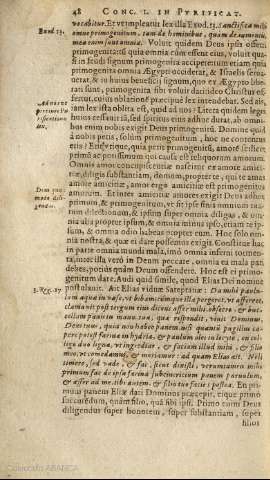 48 CONC. I. IN PVRIFICAT.
vocabitur. Et vt impleatur lex illa Exod. 13. Sanctifica mihi
Exod. 13.
omne primogenitum, tam de hominibus, quàm de iumentis,
mea enim sunt omnia. Voluit quidem Deus ipsis offerri
primogenita: si quia omnia cùm essent eius, voluit quasi
& in feudi signum primogenita
primogenita omnia Ægypti occiderat, & Israelis serua-
uerat, & in huius beneficij signum, quo ex Ægypto libe-
rati sunt, primogenita sibi voluit dari: ideo Christus of-
fertur, cuius oblationé præcipuè lex intendebat. Sed ais,
iam lex ista oblata est, quid ad nos? Litera quidem legis
huius cessauit, sed spiritus eius adhuc durat, ab omni-
bus enim nobis exigit Deus primogenita. Domine quid
à nobis petis, solum primogenitum, hoc ne contentus
eris? Etiam
primò ac potissimum
Omnis amor concupiscentiæ nascitur ex amore amici-
tiæ, diligis substantiam, domum, propter te, qui te amas
amore amicitiæ, amor ergo amicitiæ est primogenitus
amorum. Et inter amicitiæ amores exigit Deus adhuc
primum, & primogenitum, vt sit ipse finis omnium tua-
rum dilectionum, & ipsum super omnia diligas, & om-
nia alia propter ipsum, & omnia minùs ipso, etiam te ip-
sum, & omnia odio habeas propter eum. Hoc sibi om-
nia nostra, & quæ ei dare possumus exigit. Constitue hæc
in parte omnia mundi mala, imò omnia inferni tormen-
ta, totilla verò in Deum peccate, omnia ea mala pati
debes, potiùs quàm Deum offendere. Hoc est ei primo-
genitum dare. Audi quid simile, quod Elias Dei nomine
postulauit. Ait Elias viduæ Sareptanæ: Da mihi paulu-
3. Reg. 17
lum aquæ in vase, vt bibam: cùmque illa pergeret, vt afferret,
clamauit post tergum eius dicens: affer mihi, obsecro, & buc-
cellam panis in manu tua. quæ respondit, viuit Dominus,
Deus tuus, quia non habeo panem nisi quantùm pugillus ca-
pere potest farinæ in hydria, & paulum olei in lecyto, en col-
ligo duo ligna, vt ingrediar, & faciam illud mihi, & filio
meo, vt comedamus, & moriamur: ad quam Elias ait. Noli
timere, sed vade, & fac, sicut dixisti, veruntamen mihi
primum fac de ipsa farina subcinericium panem paruulum,
& affer ad me. tibi autem, & filio tuo facies postea. En pri-
mum panem Eliæ dari Dominus præcepit, eique primò
succurendum, quàm filio, quà sibi ipsi. Primo enim Deus
diligendus super honorem, super substantiam, super
filios